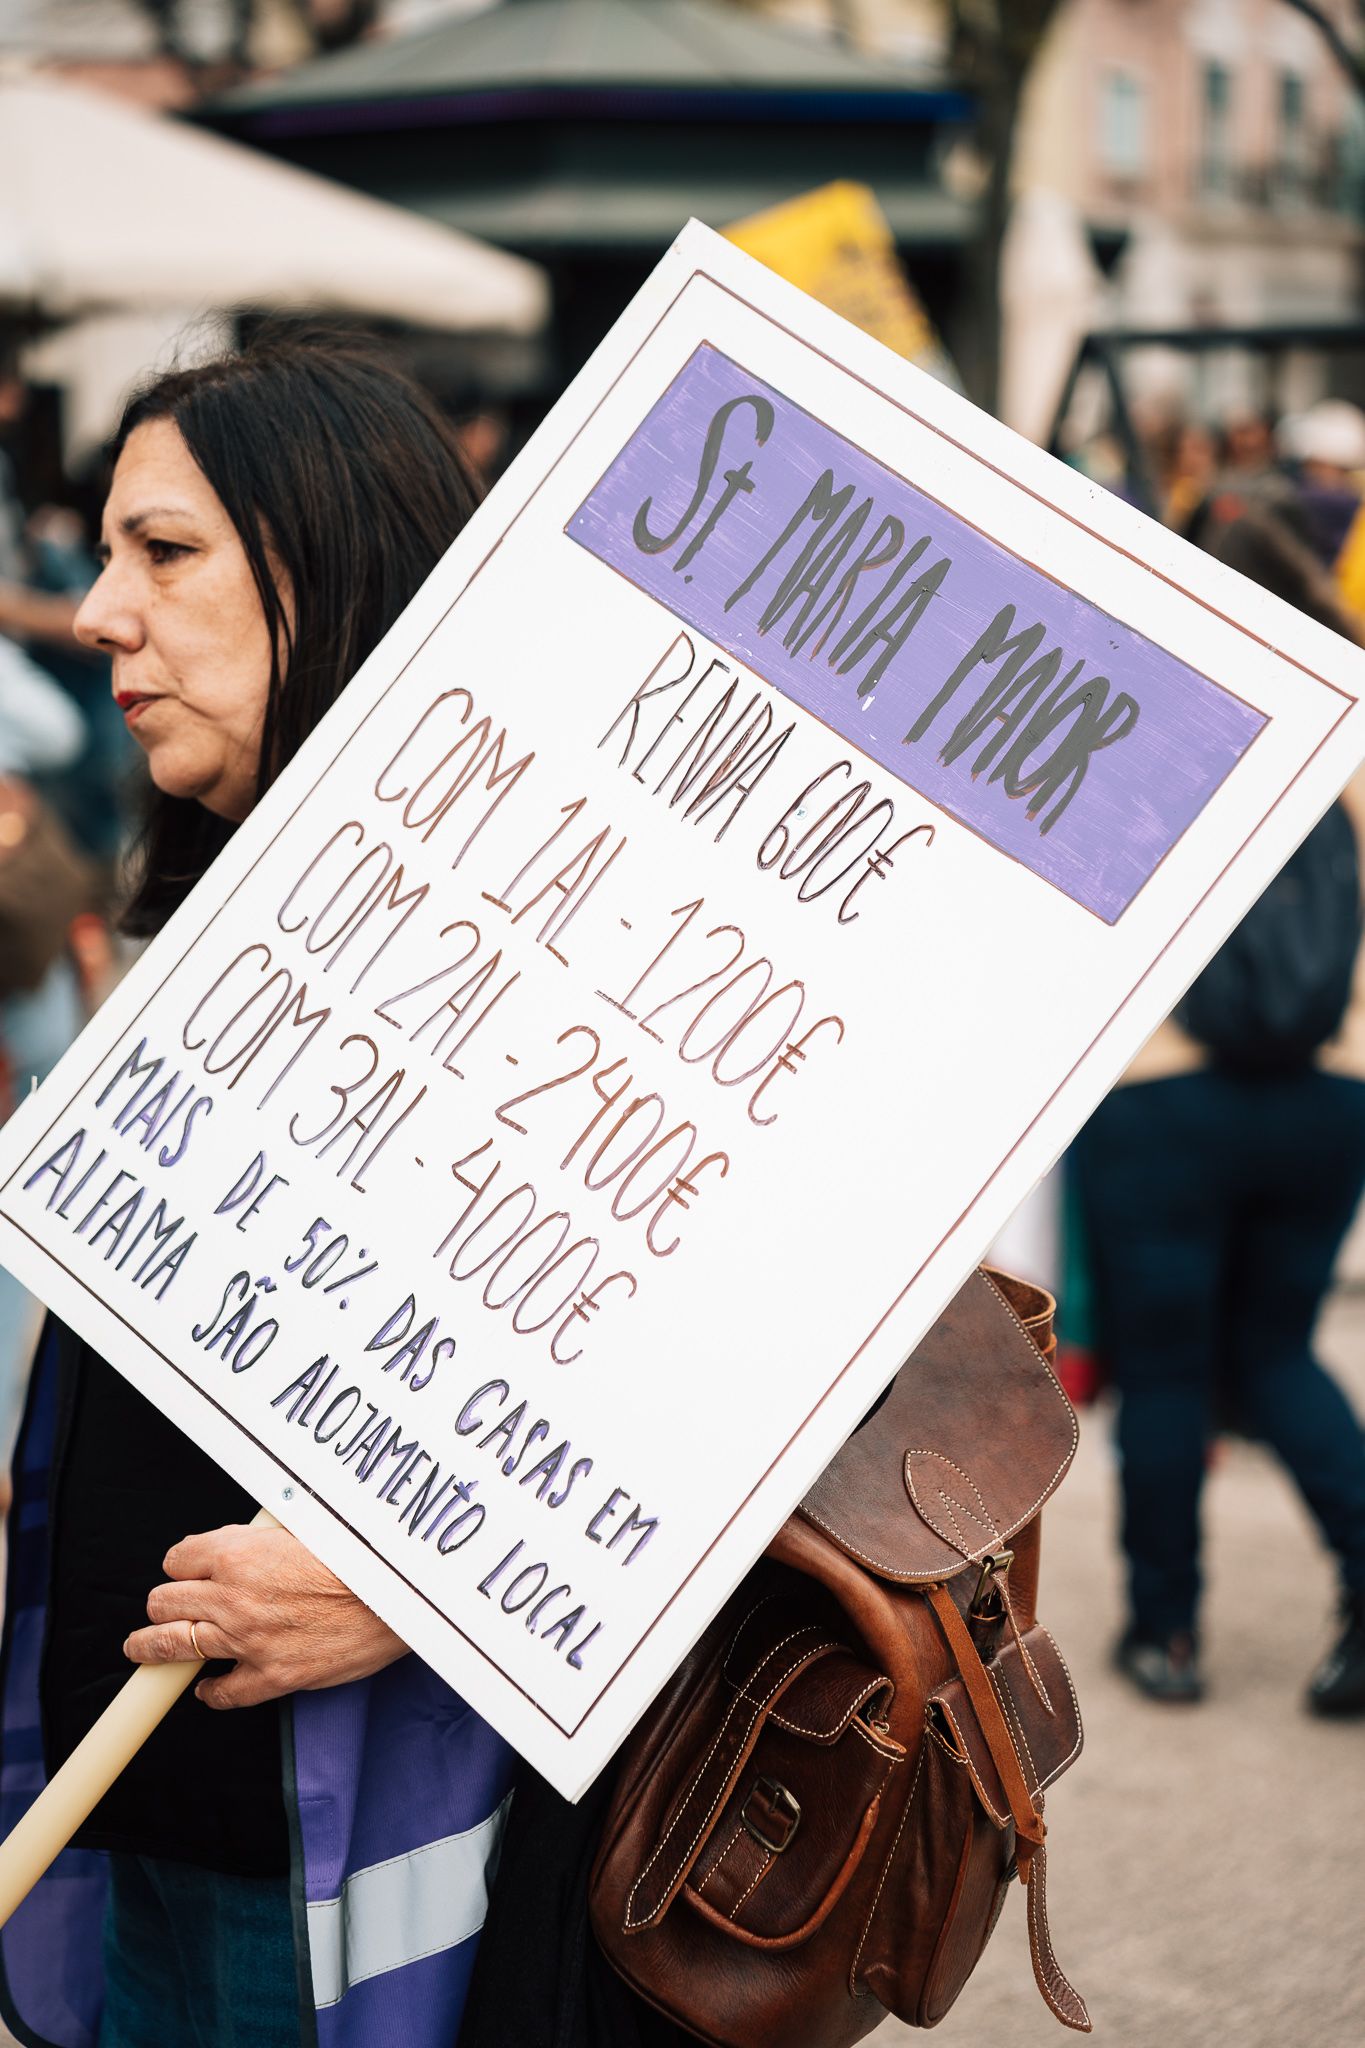 St. MARIA MAIOR
RENDA 600€
COM 1AL - 1200€
COM 2AL - 2400€
COM 3AL - 4000€
MAIS DE 50% DAS CASAS EM
ALFAMA SÃO ALOJAMENTO LOCAL